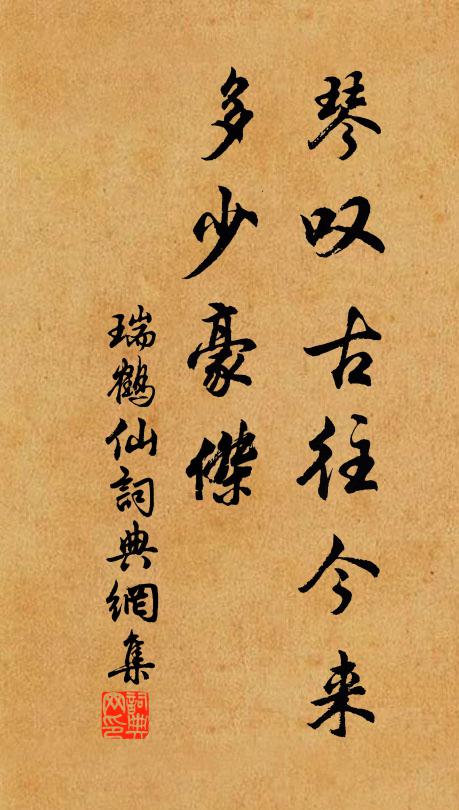 琴叹古往今来
多少豪傑
瑞鶴仙詞典網集
詞典
网印